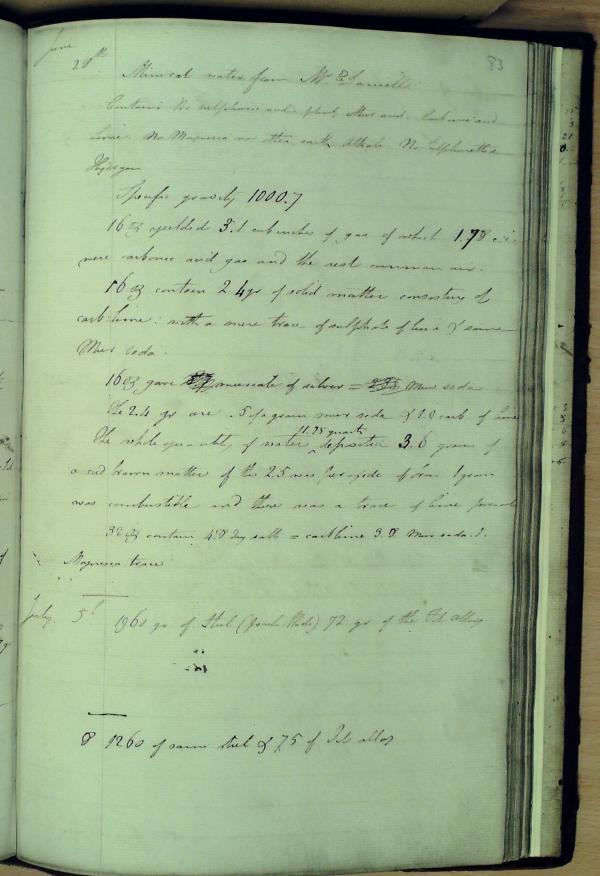 83
June
28th
Mineral water from Mr
Contains No sulphuric acid - plenty Mur acid. Carbonic acid
Lime No Magnesia nor other earth Alkali No Sulphuretted
Hydrogen
Specific gravity 1000.7
16 oz yielded 3.1 cub inches of gas of which 1.78 c.i.
were carbonic acid gas and the rest common air.
16 oz contain 2.4 gr of solid matter consisting of
carb: lime: with a mere trace of sulphate of lime & some
Mur soda.
16 oz gave muriate of silver = Mur soda
The 2.4 gr are .5 of a grain mur soda & 1.9 carb of lime
11.75 quarts
The whole quantity of water deposited 3.6 grains of
a red brown matter of this 2.5 was peroxide of iron 1 grain
was combustible and there was a trace of lime present
32 oz contain 4.8 dry salts = carb lime 3.8 Mur soda .1.
Magnesia trace
July 5th 1960 gr of steel 72 gr of the alloy
8 1260 of same steel & 75 of alloy